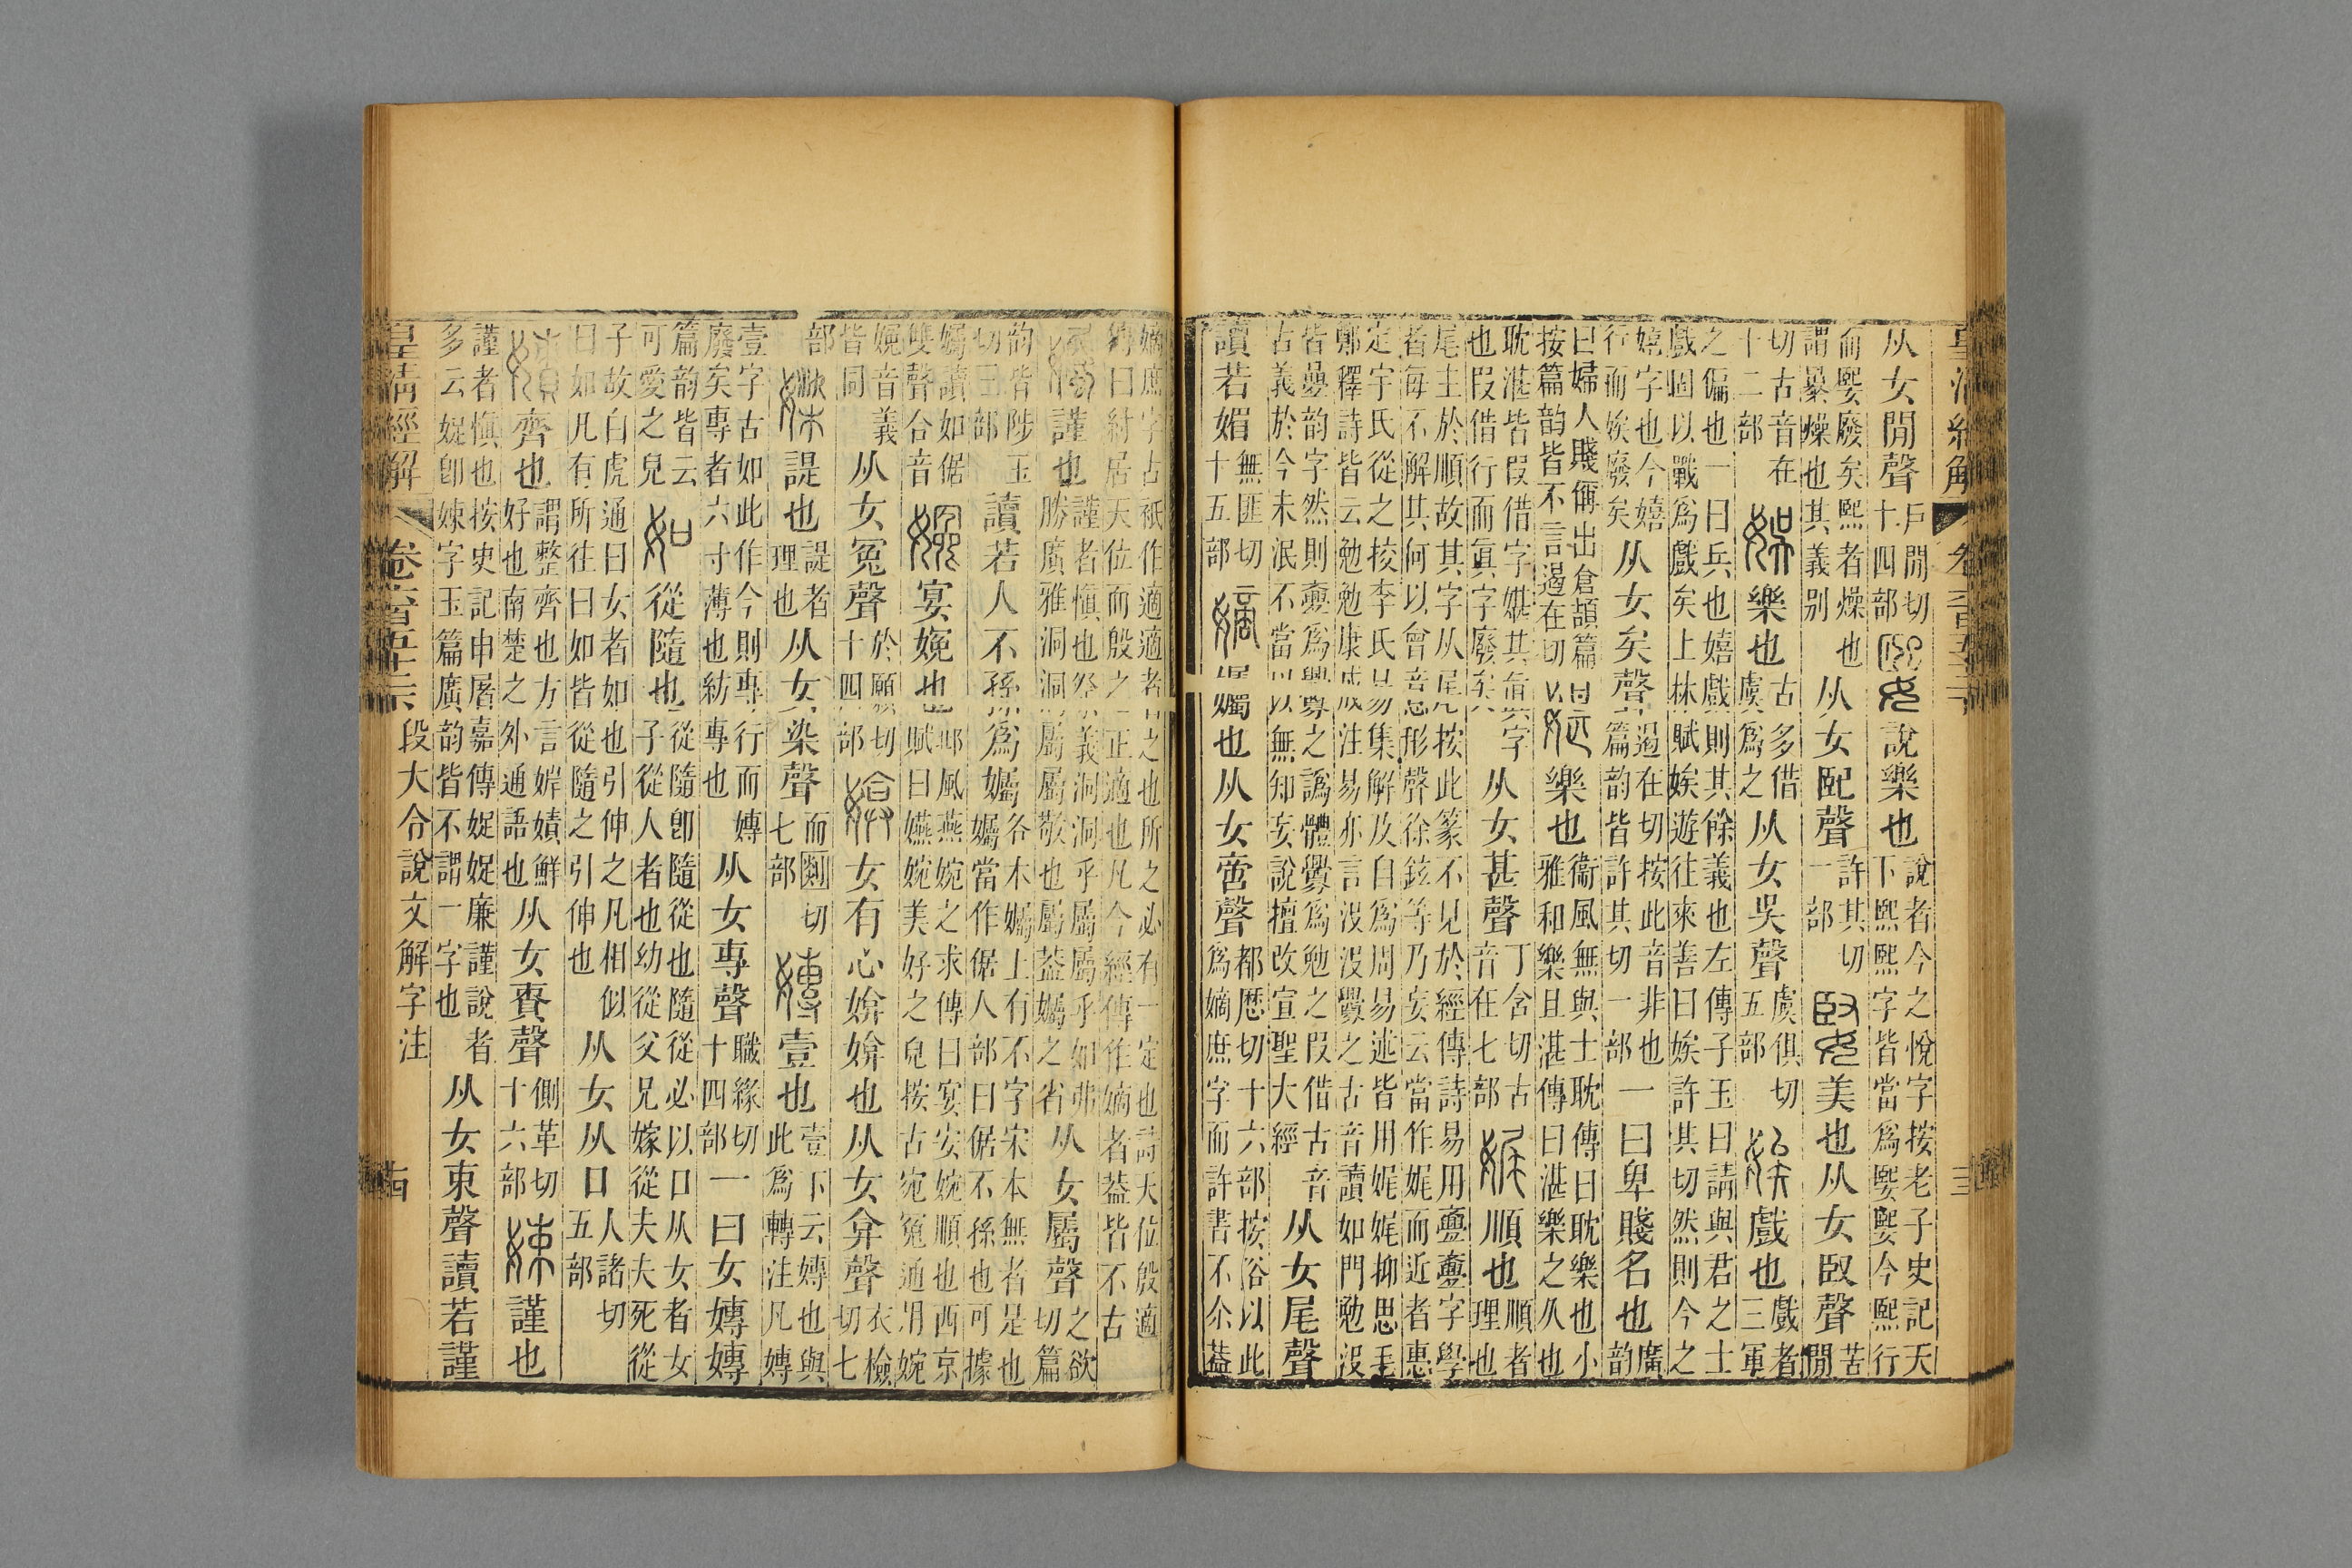 从女閒聲戶閒切十四部媐說樂也說者今之悅字按老子史記天下熙熙字皆當爲媐媐今熙行
而媐廢矣熙者燥也謂暴燥也其義别从女巸聲許其切一部㛭美也从女臤聲苦閒
切古音在十二部娛樂也古多借虞爲之从女吳聲虞俱切五部娭戲也戲者三軍
之偏也一曰兵也嬉戲則其餘義也左傳子玉曰請與君之士戲固以戰爲戲矣上林賦娭遊往來善曰娭許其切然則今之
嬉字也今嬉行而娭廢矣从女矣聲遏在切按此音非也篇韵皆許其切一部一曰卑賤名也廣韵
曰婦人賤偁出倉頡篇按篇韵皆不言遏在切媅樂也衞風無與士耽傳曰耽樂也小雅和樂且湛傳曰湛樂之久也
耽湛皆叚借字媅其眞字也叚借行而眞字廢矣从女甚聲丁含切古音在七部娓順也順者理也
尾主於順故其字从尾按此篆不見於經傳詩易用亹亹字學者每不解其何以會意形聲徐鉉等乃妄云當作娓而近者惠
定宇氏從之挍李氏易集解及自爲周易述皆用娓娓抑思毛鄭釋詩皆云勉勉康成注易亦言沒沒釁之古音讀如門勉沒
皆疊韵字然則亹爲釁之譌體釁爲勉之叚借古音古義於今未泯不當以無知妄說擅改宣聖大經从女尾聲
讀若媚無匪切十五部嫡孎也从女啻聲都歷切十六部按俗以此爲嫡庶字而許書不尒葢
嫡庶字古祇作適適者之也所之必有一定也詩天位殷適傳曰紂居天位而殷之正適也凡今經傳作嫡者葢皆不古
孎謹也謹者愼也祭義洞洞乎屬屬乎如弗勝廣雅洞洞屬屬敬也屬葢孎之省从女屬聲之欲切篇
韵皆陟玉切三部讀若人不孫爲孎各本孎上有不字宋本無者是也孎當作倨人部曰倨不孫也可據
孎讀如倨雙聲合音㛪宴娩也邶風燕婉之求傳曰宴安婉順也西京賦曰嬿婉美好之皃按古宛冤通用婉
娩音義皆同从女冤聲於願切十四部媕女有心媕媕也从女弇聲衣檢切七
部㜣諟也諟者理也从女染聲而剡切七部嫥壹也壹下云嫥也與此爲轉注凡嫥
壹字古如此作今則專行而嫥廢矣專者六寸薄也紡專也从女專聲職緣切十四部一曰女嫥嫥
篇韵皆云可愛之皃如從隨也從隨卽隨從也隨從必以口从女者女子從人者也幼從父兄嫁從夫夫死從
子故白虎通曰女者如也引伸之凡相似曰如凡有所往曰如皆從隨之引伸也从女从口人諸切五部
嫧齊也謂整齊也方言娍嫧鮮好也南楚之外通語也从女責聲側革切十六部娕謹也
謹者愼也按史記申屠嘉傳娖娖廉謹說者多云娖卽娕字玉篇廣韵皆不謂一字也从女束聲讀若謹
皇清經解卷六百五十二段大令說文解字注十四